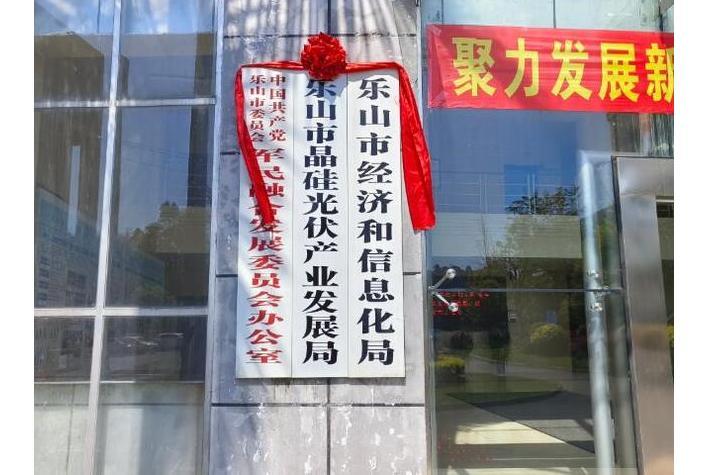 聚力发展新
乐山市经济和信息化局
乐山市晶硅光伏产业发展局
中国共产党
乐山市委员会
军民融合发展委员会办公室